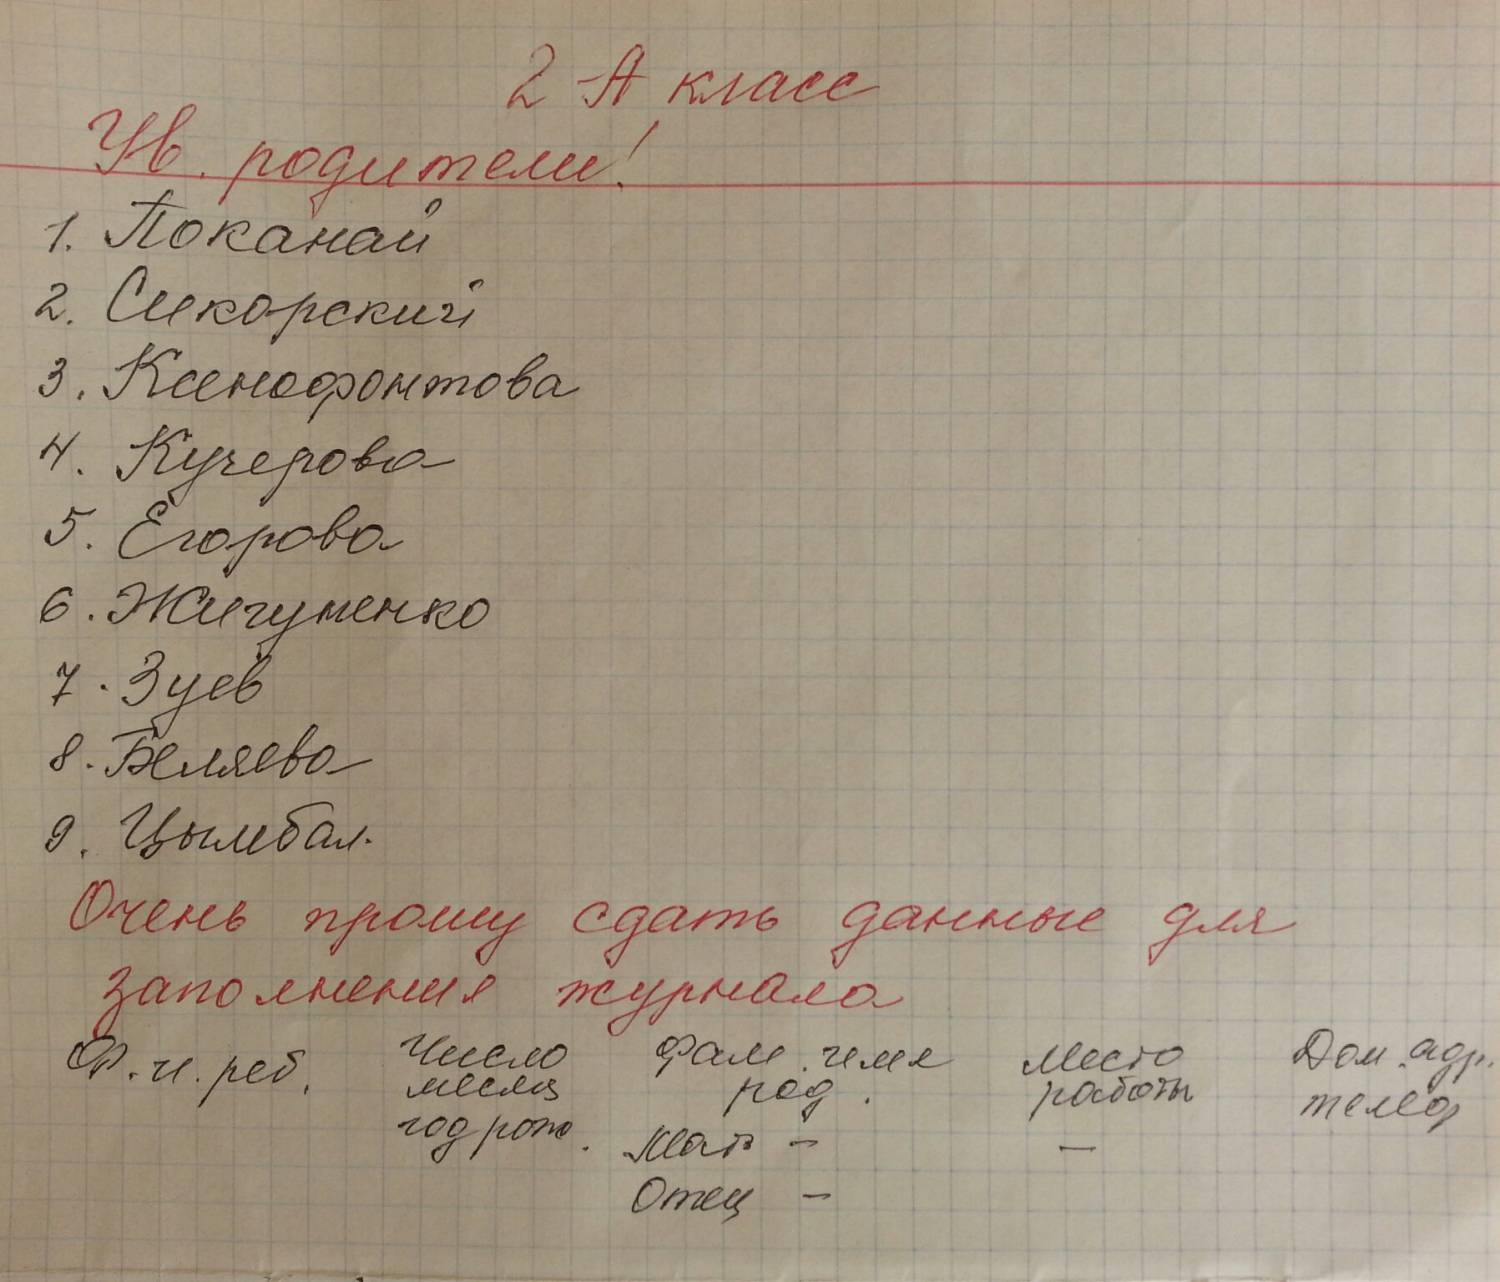 2 А класс
Ув. родители!
1. Поканай
2. Сикорский
3. Ксенофонтова
4. Кучерова
5. Егорова
6. Жигуменко
7. Зуев
8. Беляева
9. Цымбал.
Очень прошу сдать данные для
заполнения журнала
Ф.и. реб. Число Фам. имя Место Дом. адр.
месяц род. работы телеф
год рож. Мать – –
Отец –